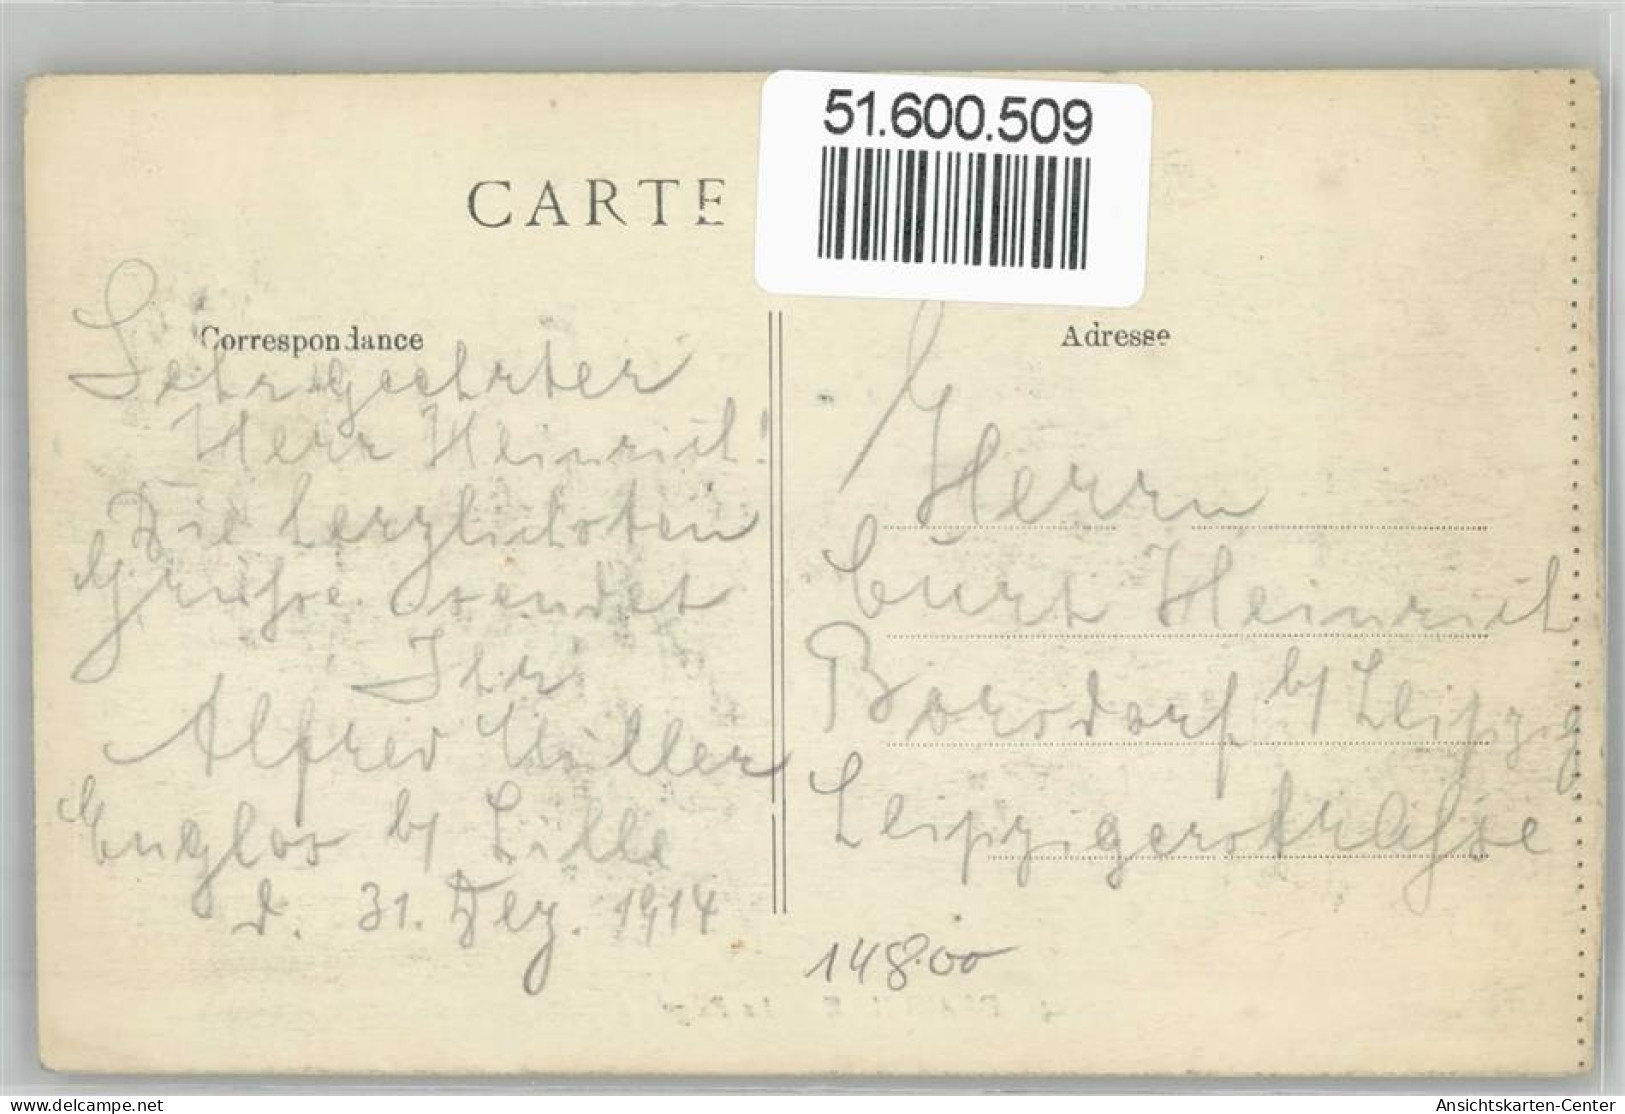 51.600.509
CARTE
Correspondance
Sehr geehrter
Herr Heinrich!
Die herzlichsten
Grüße sendet
Ihr
Alfred Müller
Englos b/ Lille
d. 31. Dez. 1914
Adresse
Herrn
Curt Heinrich
Borsdorf b/ Leipzig
Leipzigerstraße
148.00
www.delcampe.net
Ansichtskarten-Center